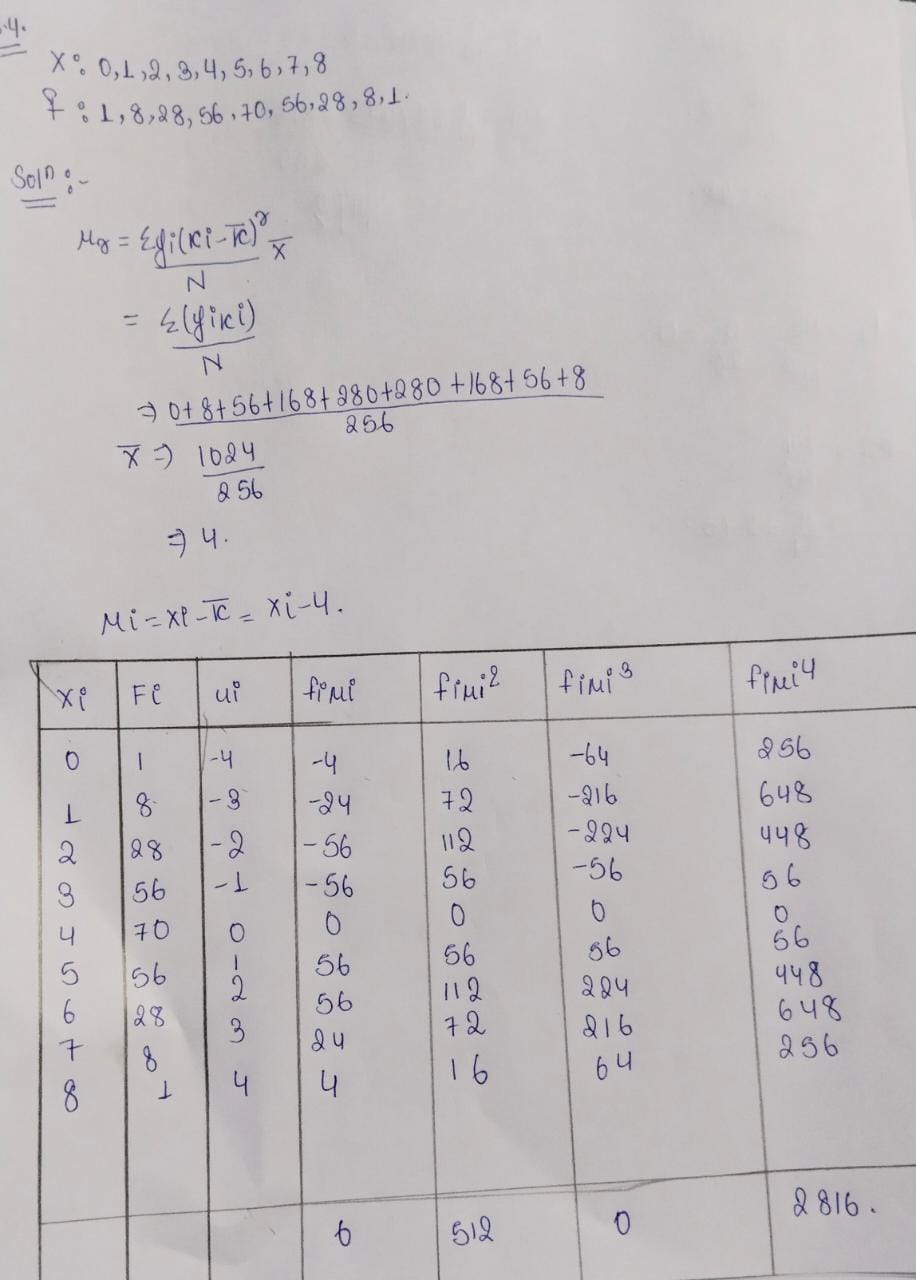 .4.
X: 0,1,2,3,4,5,6,7,8
f: 1,8,28,56,70,56,28,8,1.
Soln:-
μr = Σfi(xi-x̄)^r / N x̄
= Σ(fixi) / N
⇒ 0+8+56+168+280+280+168+56+8 / 256
x̄ ⇒ 1024 / 256
⇒ 4.
Mi=xi-x̄ = xi-4.
xi Fi ui fiMi fiMi² fiMi³ fiMi4
0 1 -4 -4 16 -64 256
1 8 -3 -24 72 -216 648
2 28 -2 -56 112 -224 448
3 56 -1 -56 56 -56 56
4 70 0 0 0 0 0
5 56 1 56 56 56 56
6 28 2 56 112 224 448
7 8 3 24 72 216 648
8 1 4 4 16 64 256
0 512 0 2816.